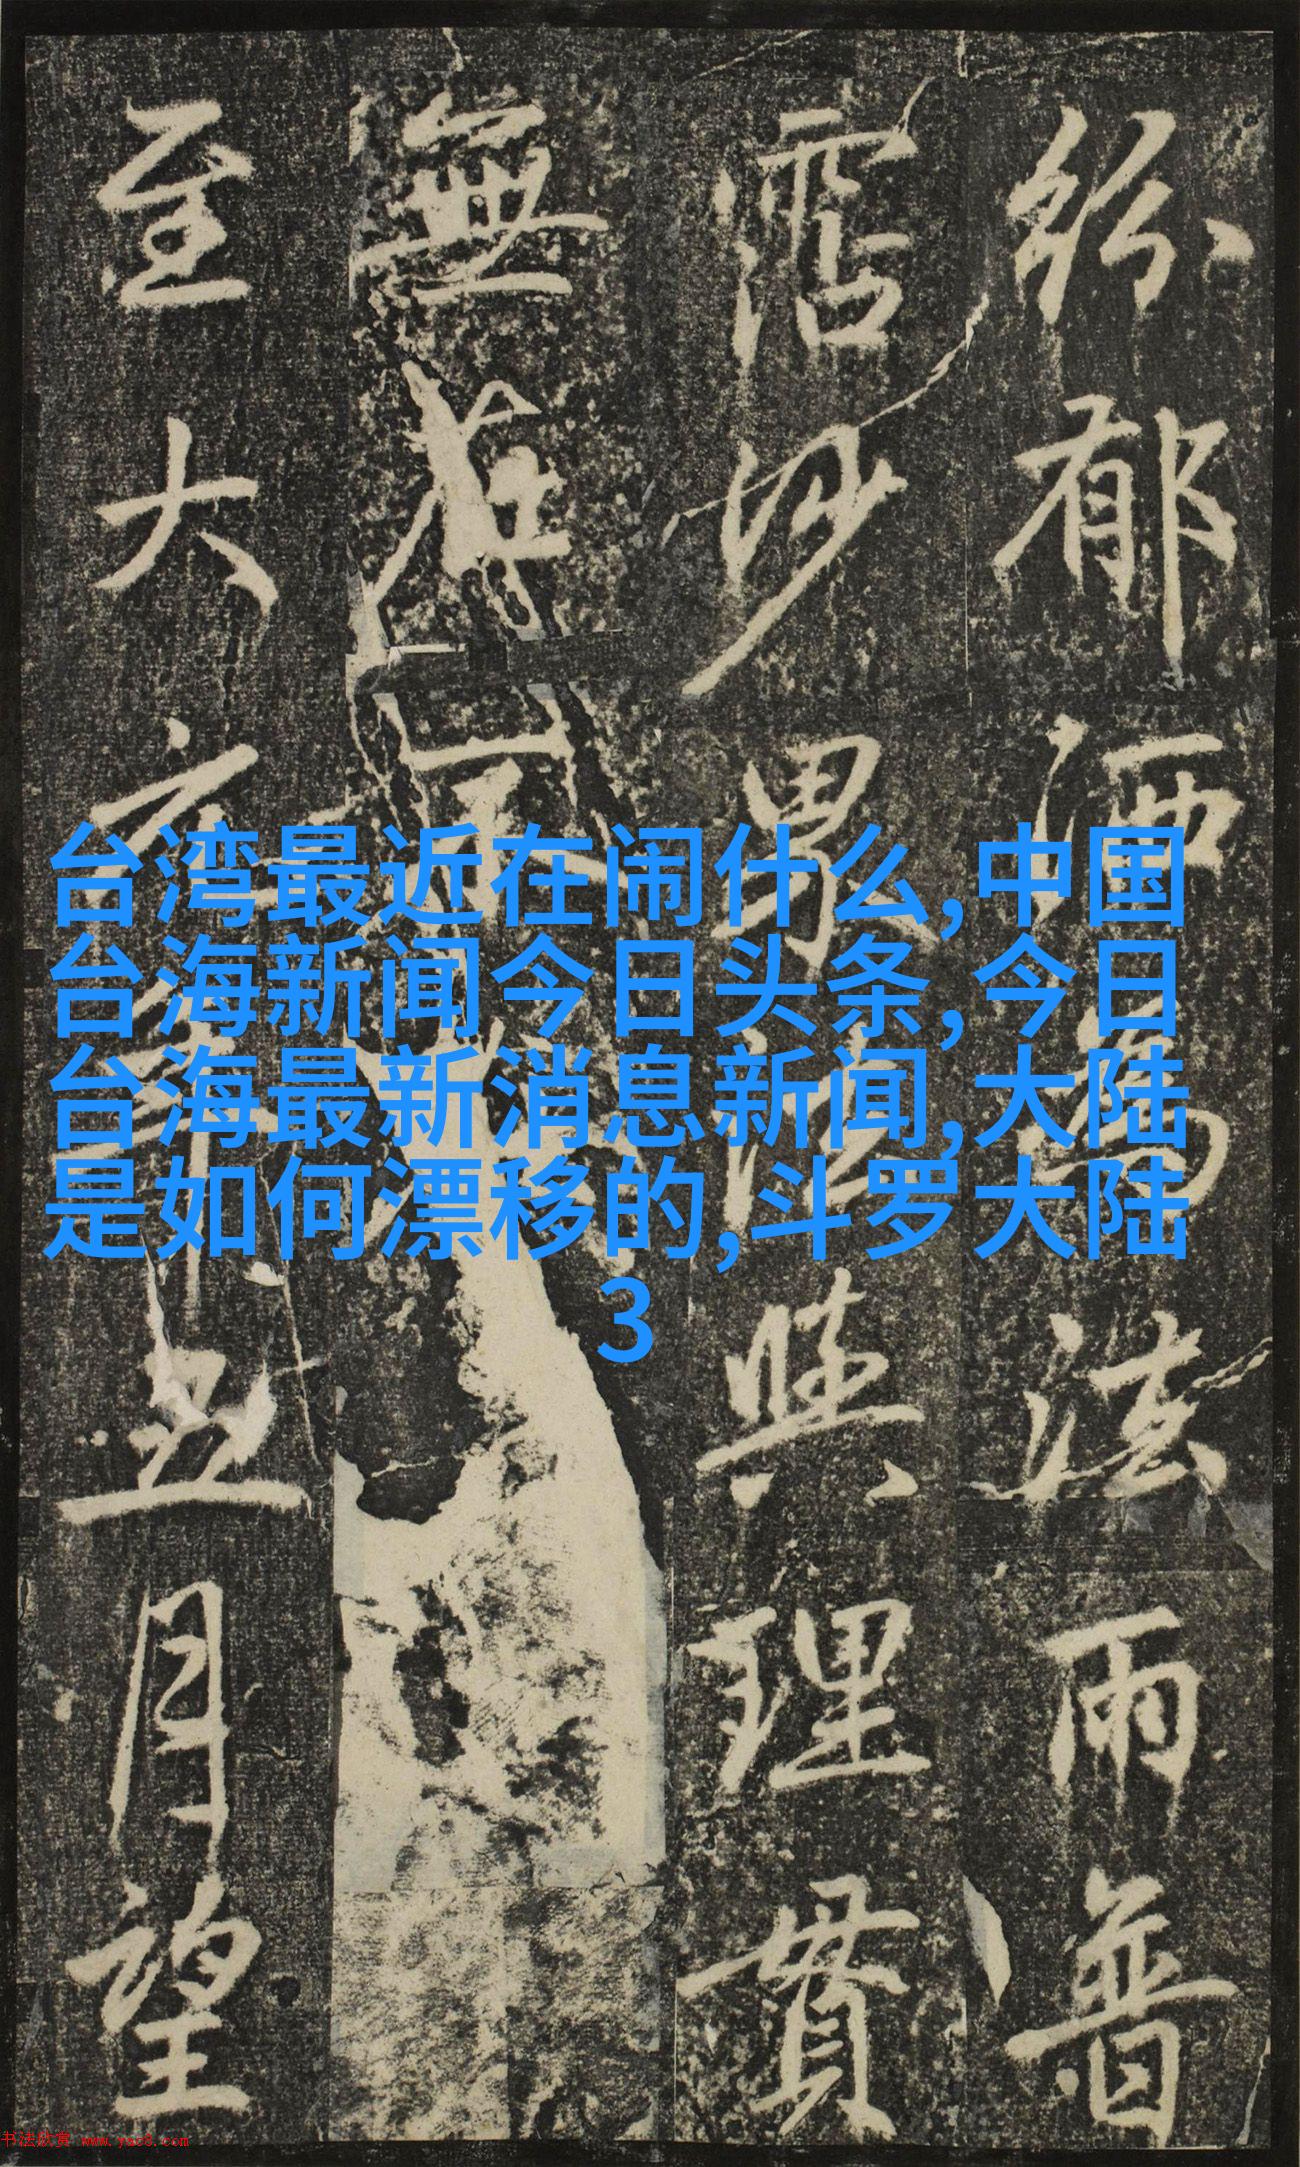 紛郁洒為法雨普
霑沙界理
無
至大年五月望
台湾最近在闹什么,中国
台海新闻今日头条,今日
台海最新消息新闻,大陆
是如何漂移的,斗罗大陆
3
书法欣赏 www.yac8.com